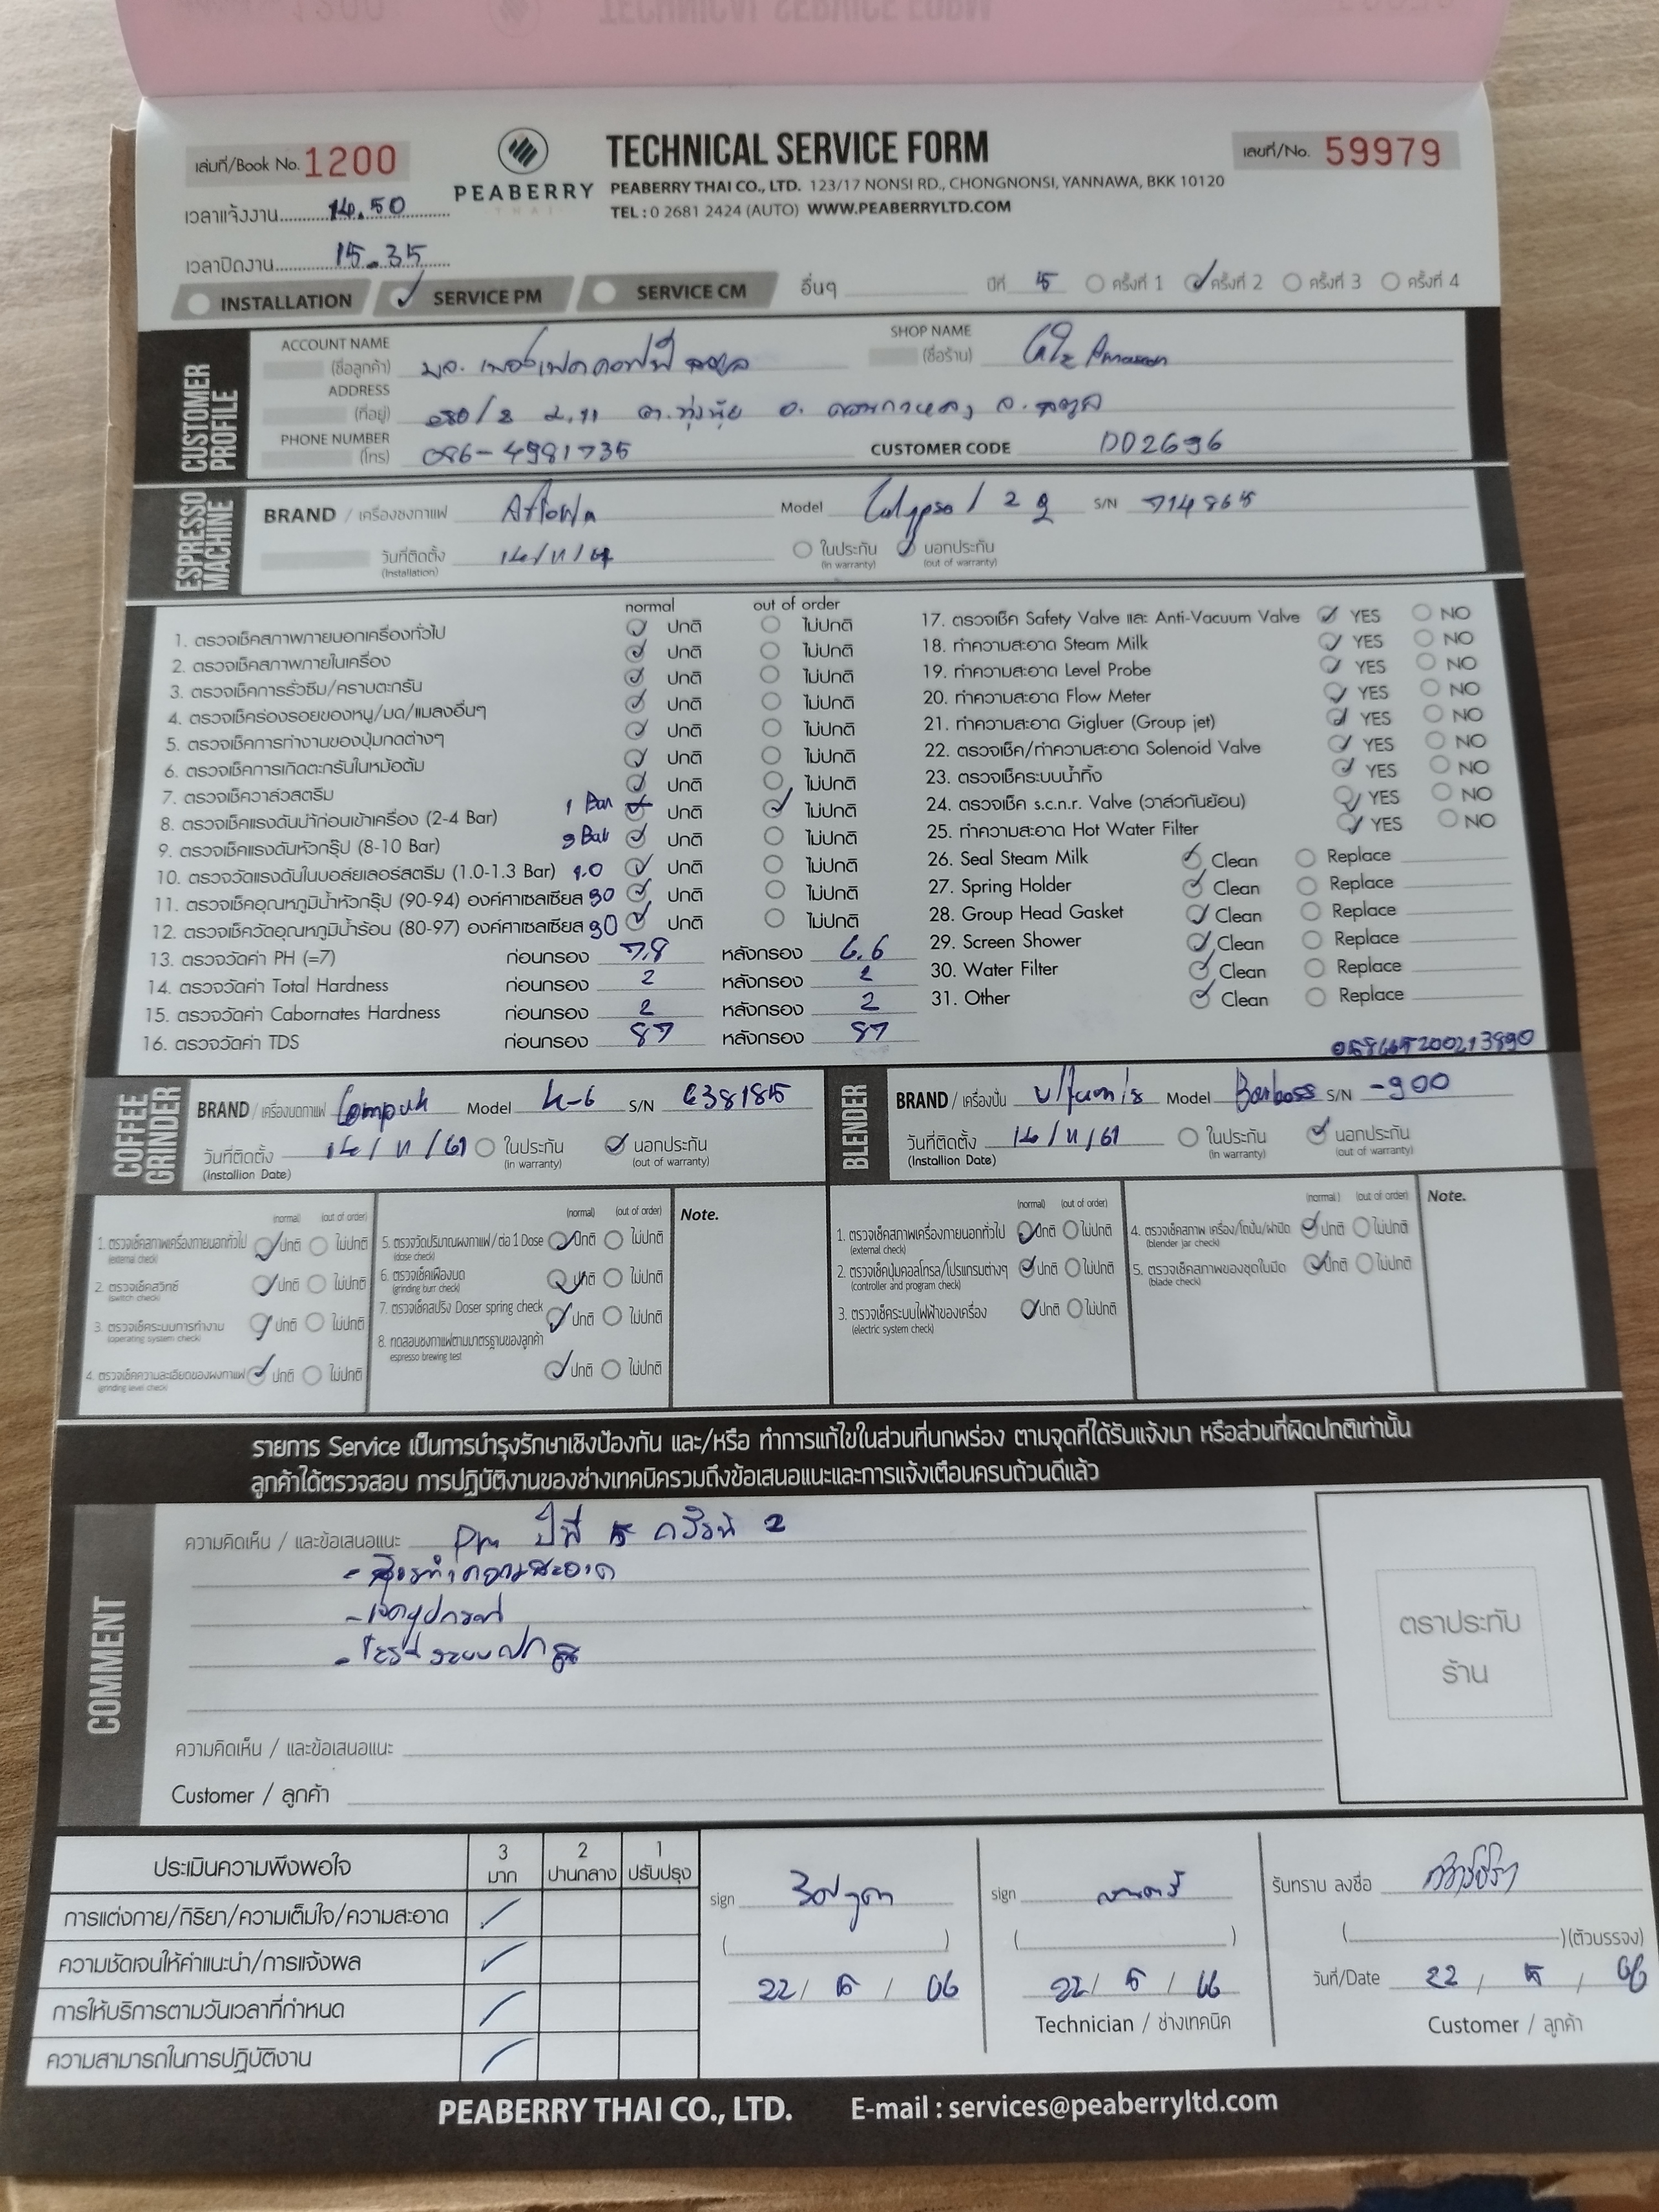 เล่มที่/Book No. 1200
PEABERRY
THAI
TECHNICAL SERVICE FORM
เลขที่/No. 59979
PEABERRY THAI CO., LTD. 123/17 NONSI RD., CHONGNONSI, YANNAWA, BKK 10120
TEL : 0 2681 2424 (AUTO) WWW.PEABERRYLTD.COM
เวลาแจ้งงาน 14.50
เวลาปิดงาน 15.35
INSTALLATION SERVICE PM SERVICE CM อื่นๆ ปีที่ 5 ครั้งที่ 1 ครั้งที่ 2 ครั้งที่ 3 ครั้งที่ 4
CUSTOMER PROFILE
ACCOUNT NAME (ชื่อลูกค้า) SHOP NAME (ชื่อร้าน) Amazon
ADDRESS (ที่อยู่) ต.ทุ่งนุ้ย อ. ควนกาหลง จ. สตูล
PHONE NUMBER (โทร) 086-4981735 CUSTOMER CODE DD2696
ESPRESSO MACHINE
BRAND / เครื่องชงกาแฟ Model Calypso / 2 g S/N 714865
วันที่ติดตั้ง (Installation) 14/11/61 ในประกัน (in warranty) นอกประกัน (out of warranty)
normal out of order
1. ตรวจเช็คสภาพภายนอกเครื่องทั่วไป ปกติ ไม่ปกติ
2. ตรวจเช็คสภาพภายในเครื่อง ปกติ ไม่ปกติ
3. ตรวจเช็คการรั่วซึม/คราบตะกรัน ปกติ ไม่ปกติ
4. ตรวจเช็คร่องรอยของหนู/มด/แมลงอื่นๆ ปกติ ไม่ปกติ
5. ตรวจเช็คการทำงานของปุ่มกดต่างๆ ปกติ ไม่ปกติ
6. ตรวจเช็คการเกิดตะกรันในหม้อต้ม ปกติ ไม่ปกติ
7. ตรวจเช็ควาล์วสตรีม ปกติ ไม่ปกติ
8. ตรวจเช็คแรงดันน้ำก่อนเข้าเครื่อง (2-4 Bar) 1 Bar ปกติ ไม่ปกติ
9. ตรวจเช็คแรงดันหัวกรุ๊ป (8-10 Bar) 9 Bar ปกติ ไม่ปกติ
10. ตรวจวัดแรงดันในบอล์ยเลอร์สตรีม (1.0-1.3 Bar) 1.0 ปกติ ไม่ปกติ
11. ตรวจเช็คอุณหภูมิน้ำหัวกรุ๊ป (90-94) องศาเซลเซียส 90 ปกติ ไม่ปกติ
12. ตรวจเช็ควัดอุณหภูมิน้ำร้อน (80-97) องศาเซลเซียส 90 ปกติ ไม่ปกติ
13. ตรวจวัดค่า PH (=7) ก่อนกรอง 7.8 หลังกรอง 6.6
14. ตรวจวัดค่า Total Hardness ก่อนกรอง 2 หลังกรอง 2
15. ตรวจวัดค่า Cabornates Hardness ก่อนกรอง 2 หลังกรอง 2
16. ตรวจวัดค่า TDS ก่อนกรอง 87 หลังกรอง 87
17. ตรวจเช็ค Safety Valve และ Anti-Vacuum Valve YES NO
18. ทำความสะอาด Steam Milk YES NO
19. ทำความสะอาด Level Probe YES NO
20. ทำความสะอาด Flow Meter YES NO
21. ทำความสะอาด Gigluer (Group jet) YES NO
22. ตรวจเช็ค/ทำความสะอาด Solenoid Valve YES NO
23. ตรวจเช็คระบบน้ำทิ้ง YES NO
24. ตรวจเช็ค s.c.n.r. Valve (วาล์วกันย้อน) YES NO
25. ทำความสะอาด Hot Water Filter YES NO
26. Seal Steam Milk Clean Replace
27. Spring Holder Clean Replace
28. Group Head Gasket Clean Replace
29. Screen Shower Clean Replace
30. Water Filter Clean Replace
31. Other Clean Replace
COFFEE GRINDER
BRAND / เครื่องบดกาแฟ Compak Model K-6 S/N 6381815
วันที่ติดตั้ง (Installion Date) 14/11/61 ในประกัน (in warranty) นอกประกัน (out of warranty)
BLENDER
BRAND / เครื่องปั่น Model Barboss S/N -900
วันที่ติดตั้ง (Installion Date) 14/11/61 ในประกัน (in warranty) นอกประกัน (out of warranty)
(normal) (out of order)
1. ตรวจเช็คสภาพเครื่องภายนอกทั่วไป (external check) ปกติ ไม่ปกติ
2. ตรวจเช็คสวิทซ์ (switch check) ปกติ ไม่ปกติ
3. ตรวจเช็คระบบการทำงาน (operating system check) ปกติ ไม่ปกติ
4. ตรวจเช็คความละเอียดของผงกาแฟ (grinding level check) ปกติ ไม่ปกติ
(normal) (out of order)
5. ตรวจวัดปริมาณผงกาแฟ/ต่อ 1 Dose (dose check) ปกติ ไม่ปกติ
6. ตรวจเช็คเฟืองบด (grinding burr check) ปกติ ไม่ปกติ
7. ตรวจเช็คสปริง Doser spring check ปกติ ไม่ปกติ
8. ทดสอบชงกาแฟตามมาตรฐานของลูกค้า espresso brewing test ปกติ ไม่ปกติ
Note.
(normal) (out of order)
1. ตรวจเช็คสภาพเครื่องภายนอกทั่วไป (external check) ปกติ ไม่ปกติ
2. ตรวจเช็คปุ่มคอลโทรล/โปรแกรมต่างๆ (controller and program check) ปกติ ไม่ปกติ
3. ตรวจเช็คระบบไฟฟ้าของเครื่อง (electric system check) ปกติ ไม่ปกติ
(normal) (out of order)
4. ตรวจเช็คสภาพ เครื่อง/โถปั่น/ฝาปิด (blender jar check) ปกติ ไม่ปกติ
5. ตรวจเช็คสภาพของชุดใบมีด (blade check) ปกติ ไม่ปกติ
Note.
รายการ Service เป็นการบำรุงรักษาเชิงป้องกัน และ/หรือ ทำการแก้ไขในส่วนที่บกพร่อง ตามจุดที่ได้รับแจ้งมา หรือส่วนที่ผิดปกติเท่านั้น
ลูกค้าได้ตรวจสอบ การปฏิบัติงานของช่างเทคนิครวมถึงข้อเสนอแนะและการแจ้งเตือนครบถ้วนดีแล้ว
COMMENT
ความคิดเห็น / และข้อเสนอแนะ Pm ปีที่ 5 ครั้งที่ 2
- ล้างทำความสะอาด
- เช็คอุปกรณ์
- เทสระบบปกติ
ความคิดเห็น / และข้อเสนอแนะ
Customer / ลูกค้า
ตราประทับ
ร้าน
ประเมินความพึงพอใจ 3 มาก 2 ปานกลาง 1 ปรับปรุง
การแต่งกาย/กิริยา/ความเต็มใจ/ความสะอาด
ความชัดเจนให้คำแนะนำ/การแจ้งผล
การให้บริการตามวันเวลาที่กำหนด
ความสามารถในการปฏิบัติงาน
sign
22/ 5 / 66
sign
22/ 5 / 66
Technician / ช่างเทคนิค
รับทราบ ลงชื่อ
(ตัวบรรจง)
วันที่/Date 22 / 5 / 66
Customer / ลูกค้า
PEABERRY THAI CO., LTD. E-mail : services@peaberryltd.com